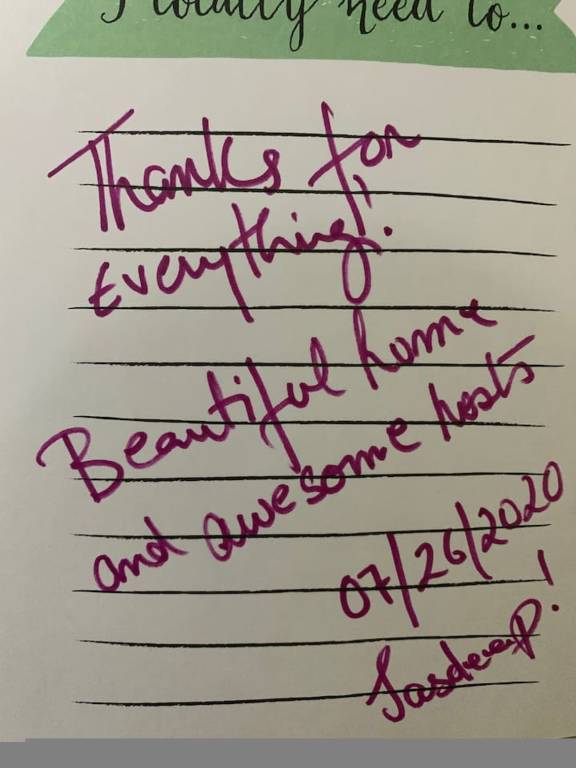 I totally need to...
Thanks for
Everything!
Beautiful home
and awesome hosts
07/26/2020
Jasdeep!